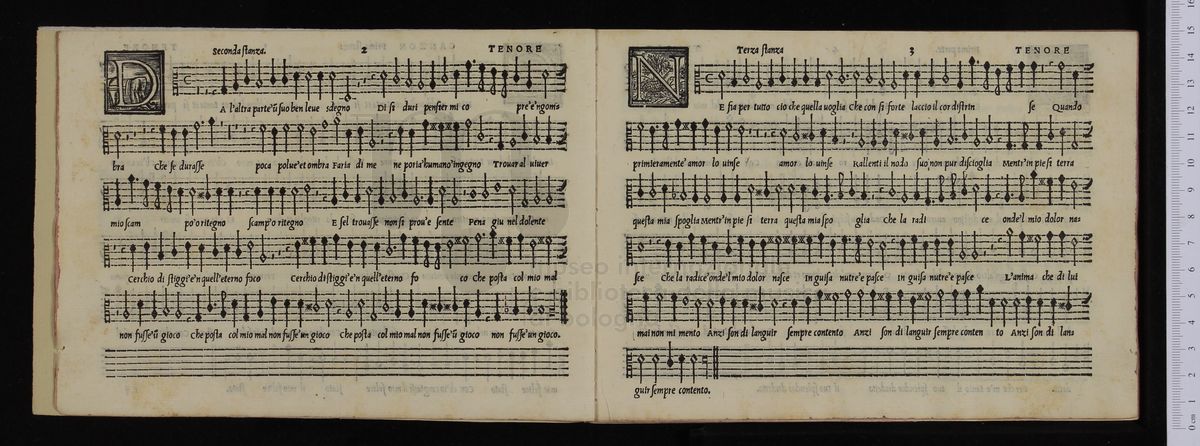 Seconda stanza. 2 TENORE
D A l'altra parte'ũ suo ben lieue sdegno Di si duri pensier mi co pre'e'ngom
bra Che se durasse poca polue'et ombra Faria di me ne poria'humano'ingegno Trouar al uiuer
mio scam po'o ritegno scamp'o ritegno E sel trouasse non si prou'e sente Pena giu nel dolente
Cerchio di stiggi'e'n quell'eterno foco Cerchio di stiggi'e'n quell'eterno fo co Che posta col mio mal
non fusse'ũ gioco Che posta col mio mal non fusse'un gioco Che posta col mio mal non fusse'ũ gioco non fusse'un gioco.
Terza stanza 3 TENORE
N E fia per tutto cio che quella uoglia Che con si forte laccio il cor distrin se Quando
primieramente'amor lo uinse amor lo uinse Rallenti il nodo suo'non pur discioglia Mentr'in pie si terra
questa mia spoglia Mentr'in pie si terra questa mia spo glia Che la radi ce onde'l mio dolor na-
sce Che la radice'onde'l mio dolor nasce in guisa nutre'e pasce in guisa nutre'e pasce L'anima che di lui
mai non mi mento Anzi son di languir sempre contento Anzi son di languir sempre conten to Anzi son di lan-
guir sempre contento.